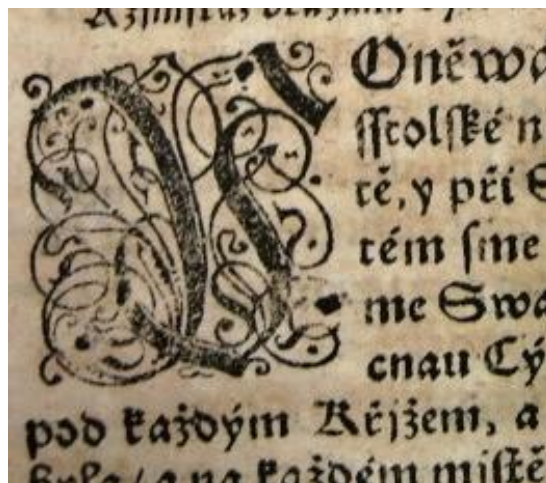 Oněwa
sstolské n
tě, y při S
tém sme
me Swa
cnau Cý
pod každým Křjžem, a
a na každém mistě